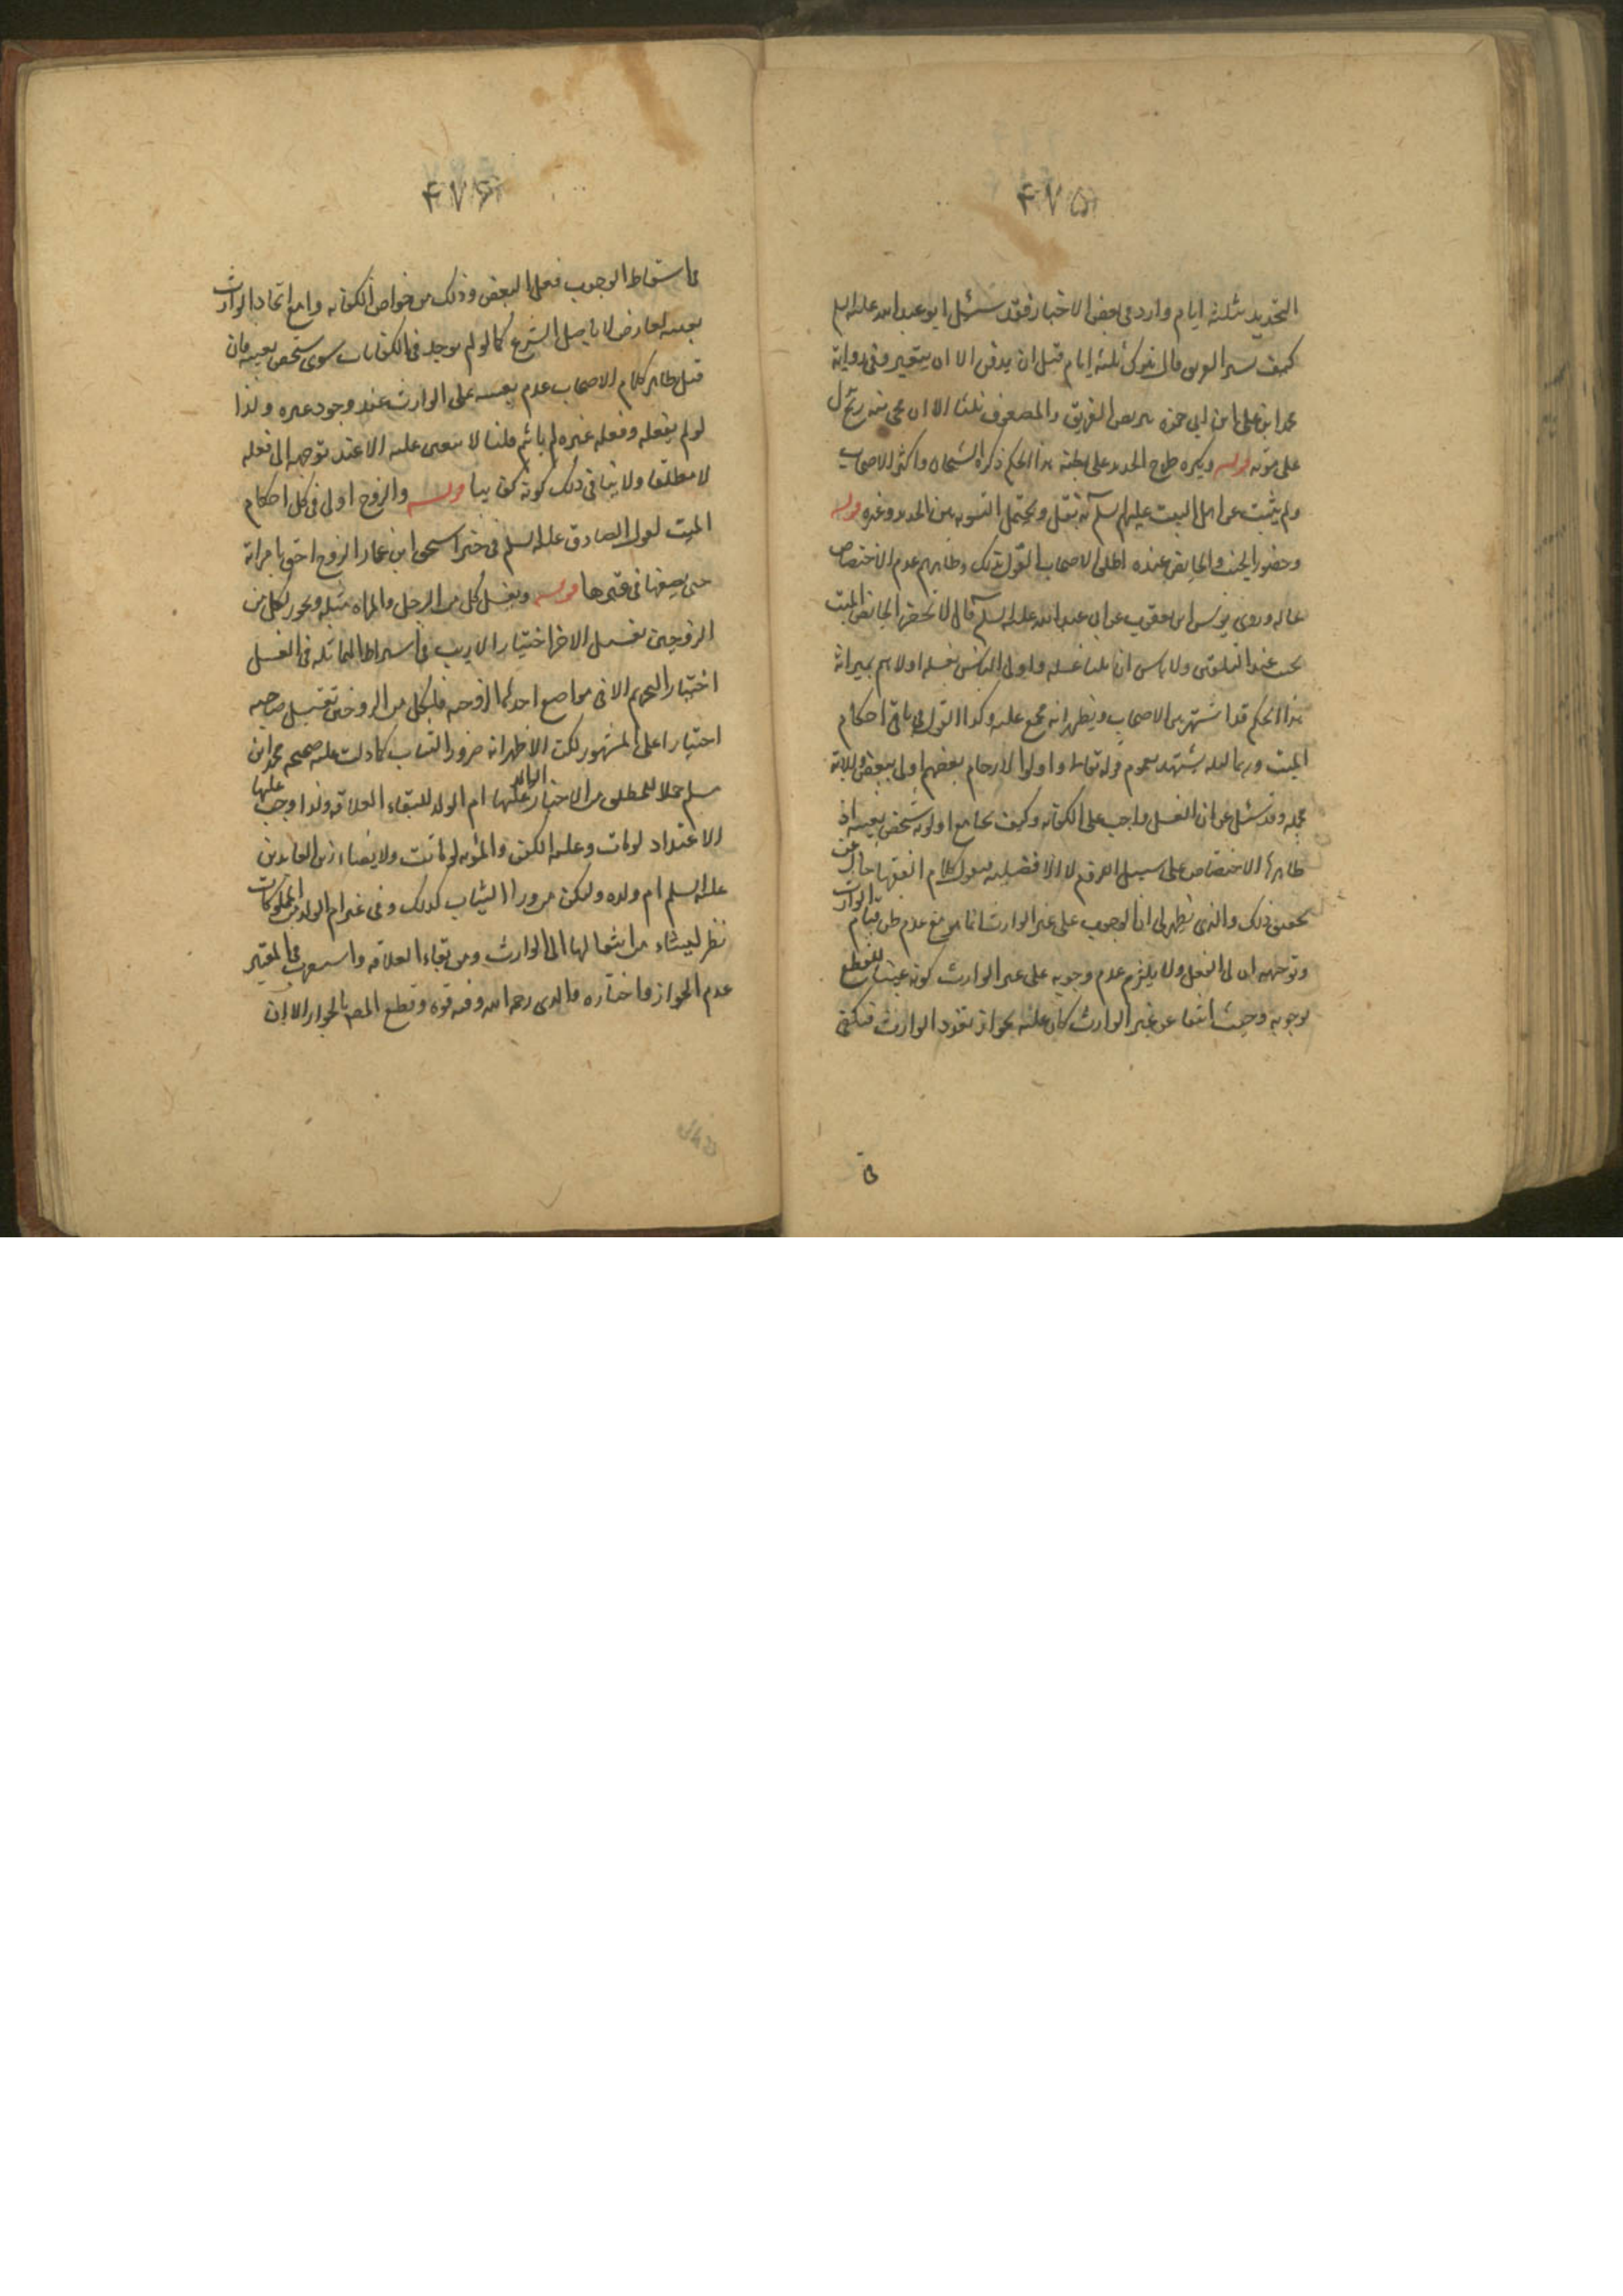 ۴۷۵
التحديد بثلثة ايام وارد في بعض الاخبار فقد سئل ابو عبد الله عليه السلم
كيف يستبرأ الغريق قال يترك ثلثة ايام قبل ان يدفن الا ان يتغير وفي رواية
محمد ابن علي ابن ابي حمزة يتربص الغريق والمصعوق ثلثا الا ان يجيئ منه ريح تدل
على موته قوله ويكره طرح الحديد على بطنه هذا الحكم ذكره الشيخان واكثر الاصحاب
ولم يثبت عن اهل البيت عليهم السلم به نقل ويحتمل التسويه بين الحديد وغيره قوله
وحضور الجنب والحائض عنده اطلق الاصحاب القول بذلك وظاهرهم عدم الاختصاص
بحاله وروى يونس ابن يعقوب عن ابي عبد الله عليه السلم قال لا تحضر الحائض الميت
ولا الجنب عند التلقين ولا باس ان يليا غسله واولى الناس بغسله اولاهم بميراثه
هذا الحكم قد اشتهر بين الاصحاب ويظهر انه مجمع عليه وكذا القول في باقي احكام
الميت وربما لعله يشهد بعموم قوله تعالى واولوا الارحام بعضهم اولى ببعض
وقد سئل عن ان الغسل واجب على الكفايه وكيف يجامع اولويه شخص بعينه اذ
ظاهرها الاختصاص على سبيل اللزوم لا الافضليه
تحقيق ذلك والذي يظهر لي ان الوجوب على غير الوارث انما هو مع عدم ظن قيام الوارث
وتوجهه الى الفعل ولا يلزم عدم وجوبه على غير الوارث كونه عينيا للقطع
بوجوبه وحيث انتفا عن غير الوارث كان علته بجواز تفرد الوارث فيكتفى
في
۴۷۶
في اسقاط الوجوب فعل البعض وذلك من خواص الكفايه واما مع اتحاد الوارث
بعينه لعارض لا باصل الشرع كما لو لم يوجد في الكفايات سوى شخص بعينه فان
قيل ظاهر كلام الاصحاب عدم تعينه على الوارث عند وجود غيره ولذا
لو لم يفعله وفعله غيره لم ياثم قلنا لا يتعين عليه الا عند توجهه الى فعله
لا مطلقا ولا ينافي ذلك كونه كفايبا قوله والزوج اولى في كل احكام
الميت لقول الصادق عليه السلم في خبر اسحق ابن عمار الزوج احق بامراته
حتى يضعها في قبرها قوله ويغسل كل من الرجل والمراه مثله ويجوز لكل من
الزوجين تغسيل الاخر اختيارا لا ريب في اشتراط المماثله في الغسل
اختيارا لتحريم الا في مواضع احدها الزوجيه فلكل من الزوجين تغسيل صاحبه
اختيارا على المشهور لكن الاظهر انه من وراء الثياب كما دلت عليه صحيحه محمد ابن
مسلم حملا للمطلق من الاخبار عليها الثانيه ام الولد لبقاء العلاقه ولذا وجب عليها
الاعتداد لو مات وعليه الكفن والمؤنه لو ماتت ولايصاء زين العابدين
عليه السلم ام ولده وليكن من وراء الثياب كذلك وفي غير ام الولد من المملوكات
نظر ينشاء من انتقالها الى الوارث ومن بقاء العلاقه واستقرب في المعتبر
عدم الجواز واختاره والدي رحمه الله وفيه قوه وقطع المص بالجواز الا ان